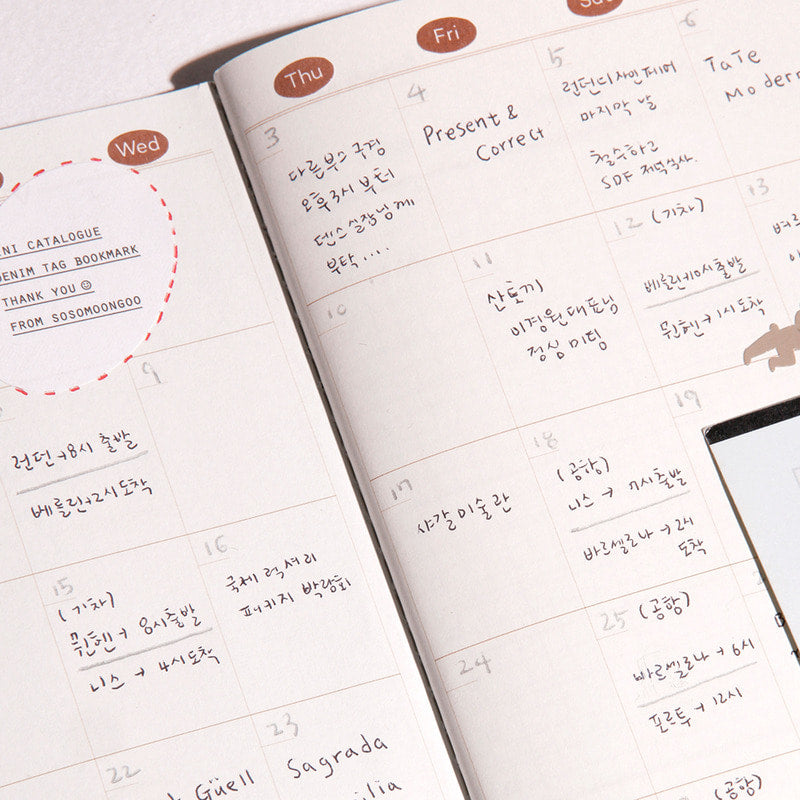 Wed
Thu
Fri
CATALOGUE
DENIM TAG BOOKMARK
THANK YOU
FROM SOSOMOONGOO
3
다른부스 구경
오후3시 부터
덴스실장님께
부탁....
4
Present &
Correct
5
런던디자인페어
마지막 날
철수하고
SDF 저녁식사.
6
TaTe
Modern
런던→8시 출발
베를린→2시도착
9
10
11
산토끼
이경원대표님
점심 미팅
12 (기차)
베를린→10시출발
뮌헨→1시도착
13
15
(기차)
뮌헨→ 8시출발
니스→ 4시도착
16
국제 럭셔리
패키지 박람회
17
샤갈미술관
18
(공항)
니스→ 11시출발
바르셀로나→2시
도착
19
22
Güell
23
Sagrada
24
25 (공항)
바르셀로나→ 6시
포르투→ 12시
(공항)